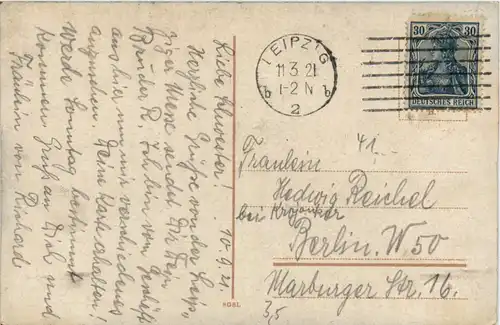 10.9.21.
Liebe Schwester!
Herzliche Grüße von der Leip-
ziger Messe sendet Dir Dein
Bruder R. Ich bin von Geschäft
aus hier um mir verschiedenes
anzusehen. Deine Karte erhalten!
Werde Sonntag bestimmt
kommen Gruß an Dich und
Fräulein von Reinhard
LEIPZIG
11.3.21.
b 1-2 N b
2
30 30
DEUTSCHES REICH
41.-
Fräulein
Hedwig Reichel
bei Krojanker
Berlin. W 50
Marburger Str. 16.
3,5